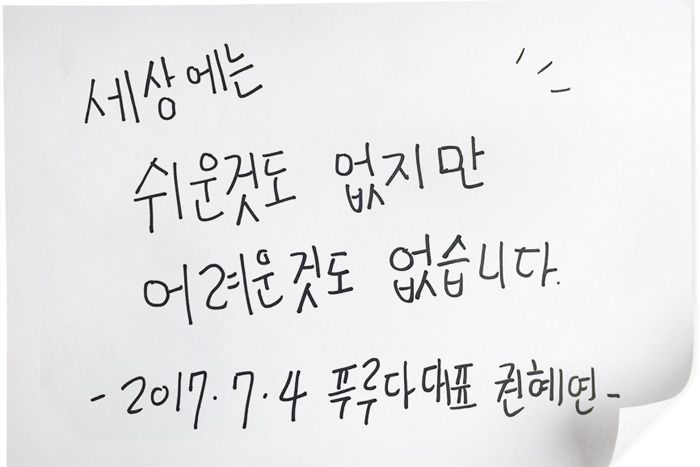 세상에는
쉬운것도 없지만
어려운것도 없습니다.
- 2017.7.4 푸루다대표 권혜연 -